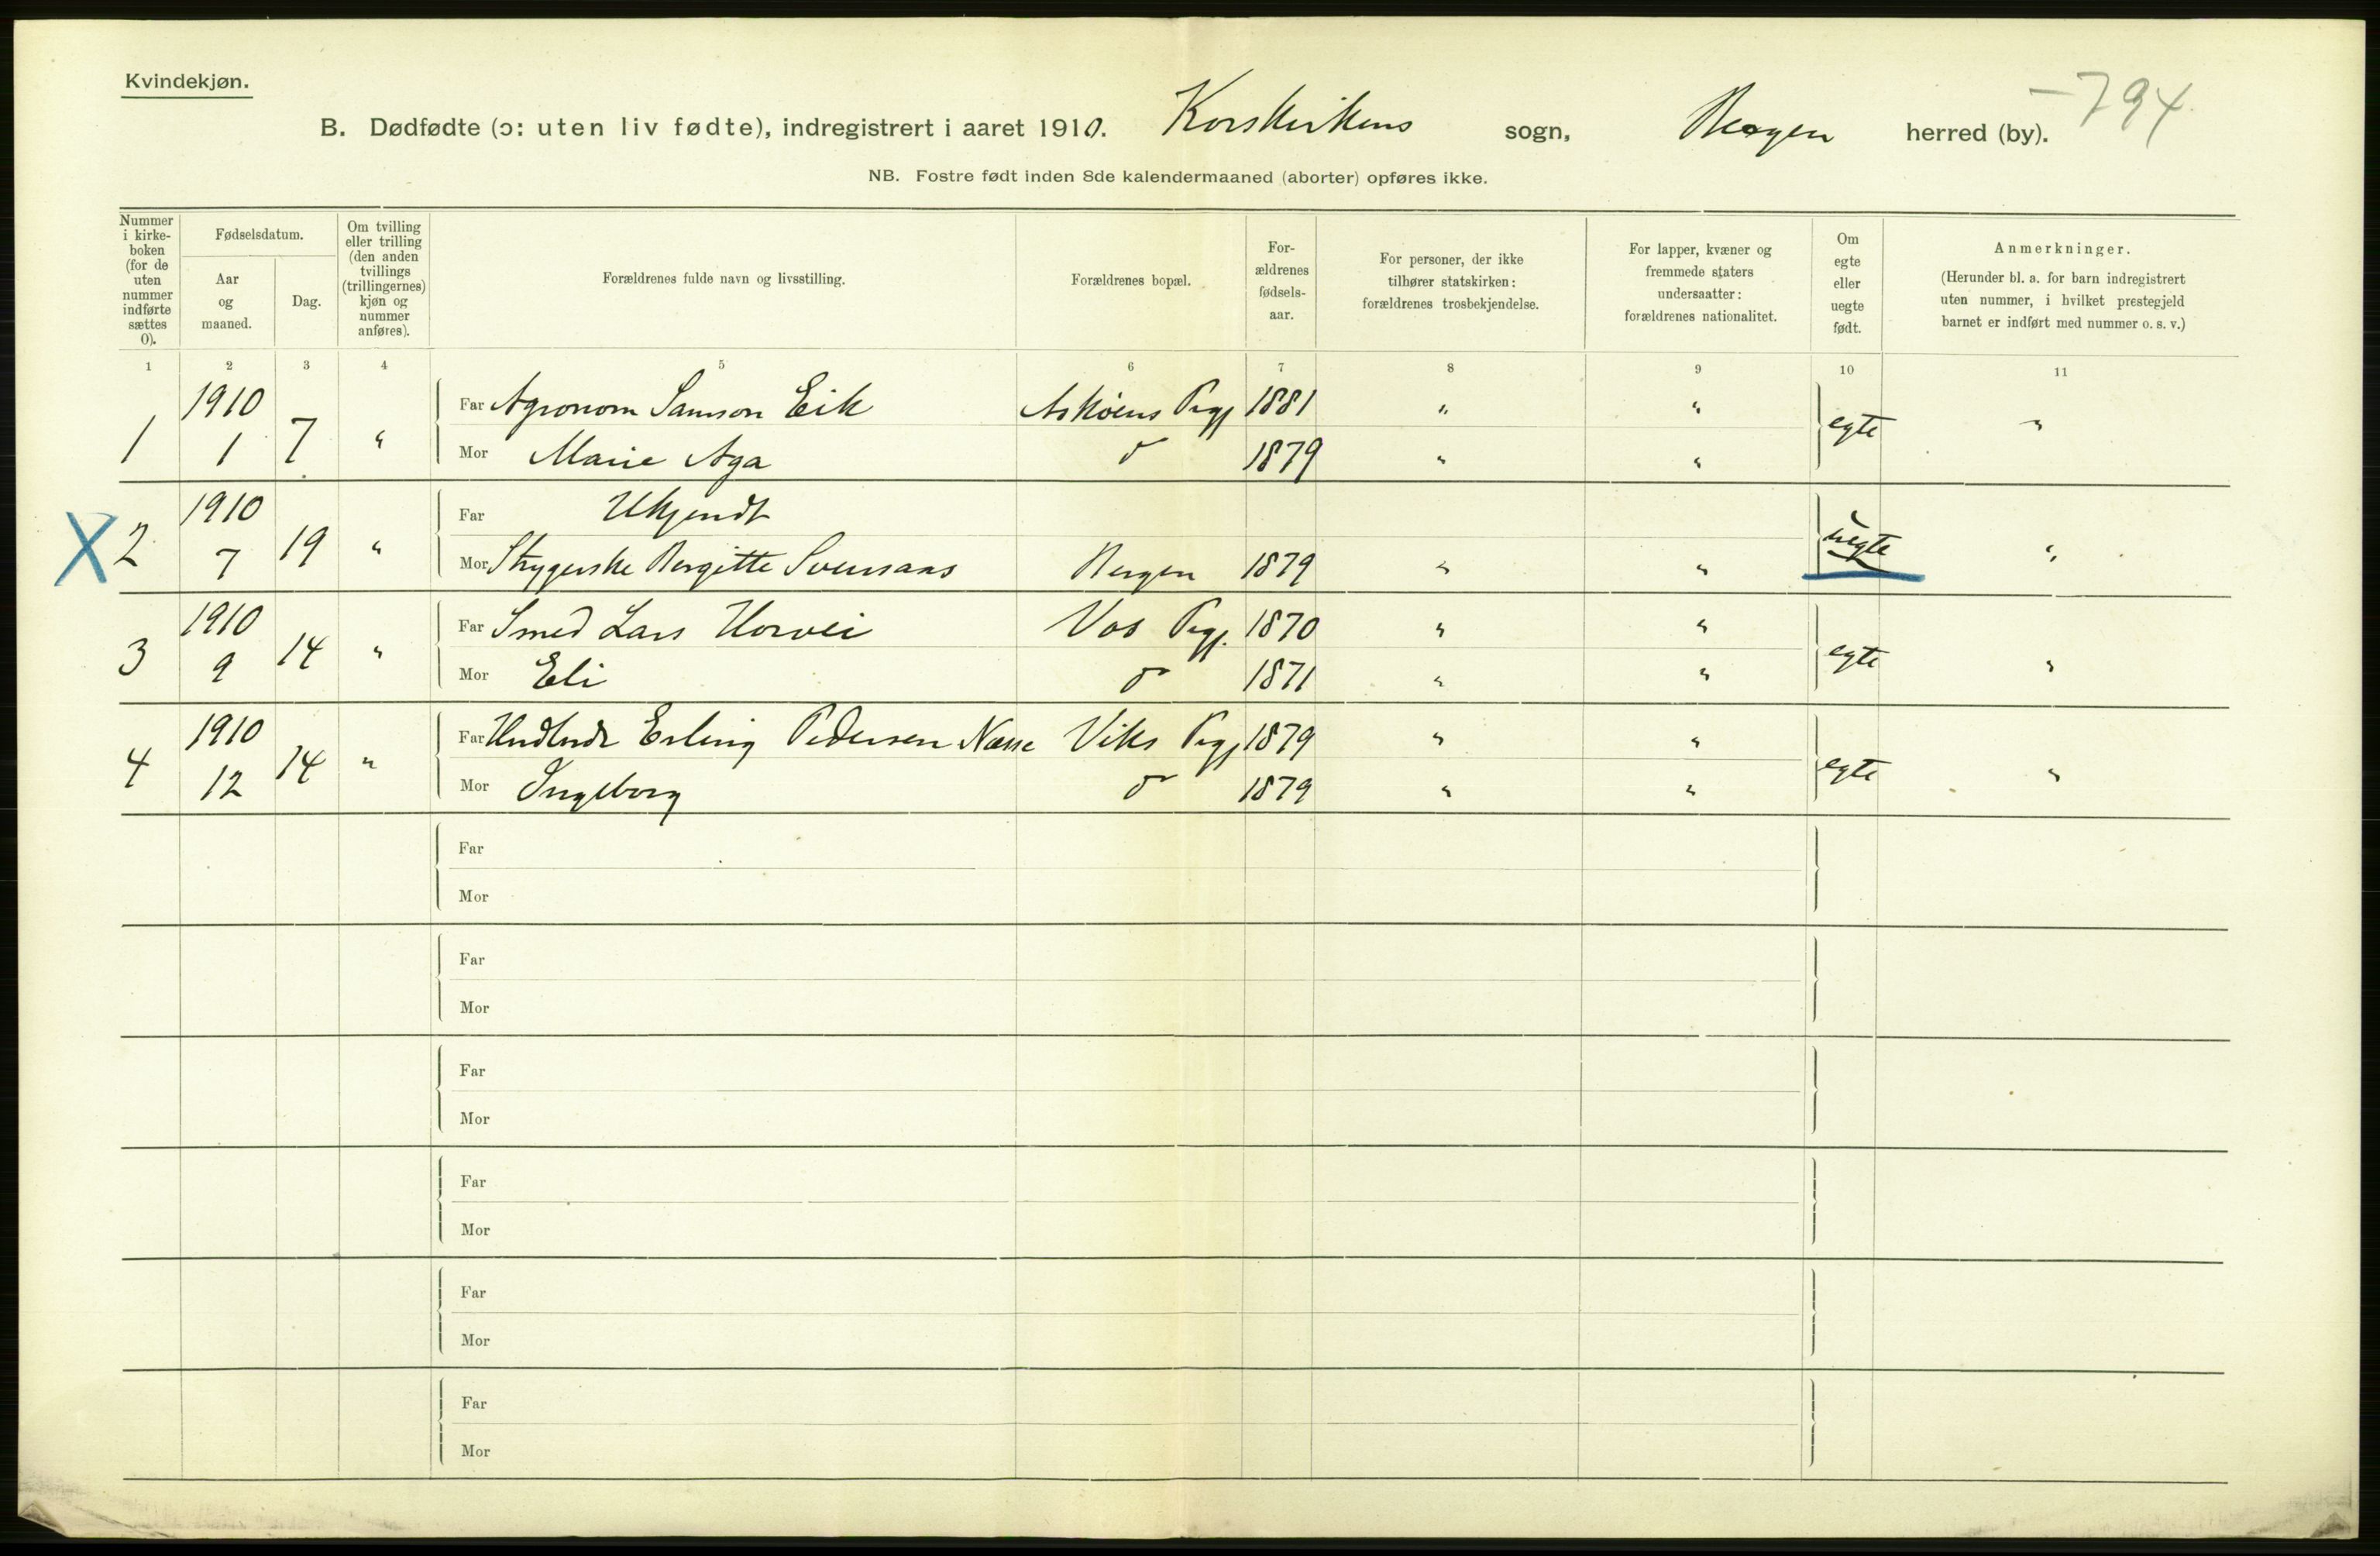 Kvindekjøn.
B. Dødfødte (ɔ: uten liv fødte), indregistrert i aaret 1910. Korskirkens sogn, Bergen herred (by). —794
NB. Fostre født inden 8de kalendermaaned (aborter) opføres ikke.
Nummer i kirke-boken (for de uten nummer indførte sættes 0).
Fødselsdatum.
Aar og maaned.
Dag.
Om tvilling eller trilling (den anden tvillings (trillingernes) kjøn og nummer anføres).
Forældrenes fulde navn og livsstilling.
Forældrenes bopæl.
For-ældrenes fødsels-aar.
For personer, der ikke tilhører statskirken: forældrenes trosbekjendelse.
For lapper, kvæner og fremmede staters undersaatter: forældrenes nationalitet.
Om egte eller uegte født.
Anmerkninger.
(Herunder bl. a. for barn indregistrert uten nummer, i hvilket prestegjeld barnet er indført med nummer o. s. v.)
1 2 3 4 5 6 7 8 9 10 11
1910 Far Agronom Samson Eik Askøens Pgj 1881 " "
1 1 7 " Mor Marie Aga d 1879 " " egte "
1910 Far Ukjendt
X 2 7 19 " Mor Strygerske Bergitte Bergen 1879 " " uegte "
1910 Far Smed Lars Horvei Vos Pgj. 1870 " "
3 9 14 " Mor Eli d 1871 " " egte "
1910 Far Erling Pedersen Næsse Viks Pgj 1879 " "
4 12 14 " Mor Ingeborg d 1879 " " egte "
Far
Mor
Far
Mor
Far
Mor
Far
Mor
Far
Mor
Far
Mor